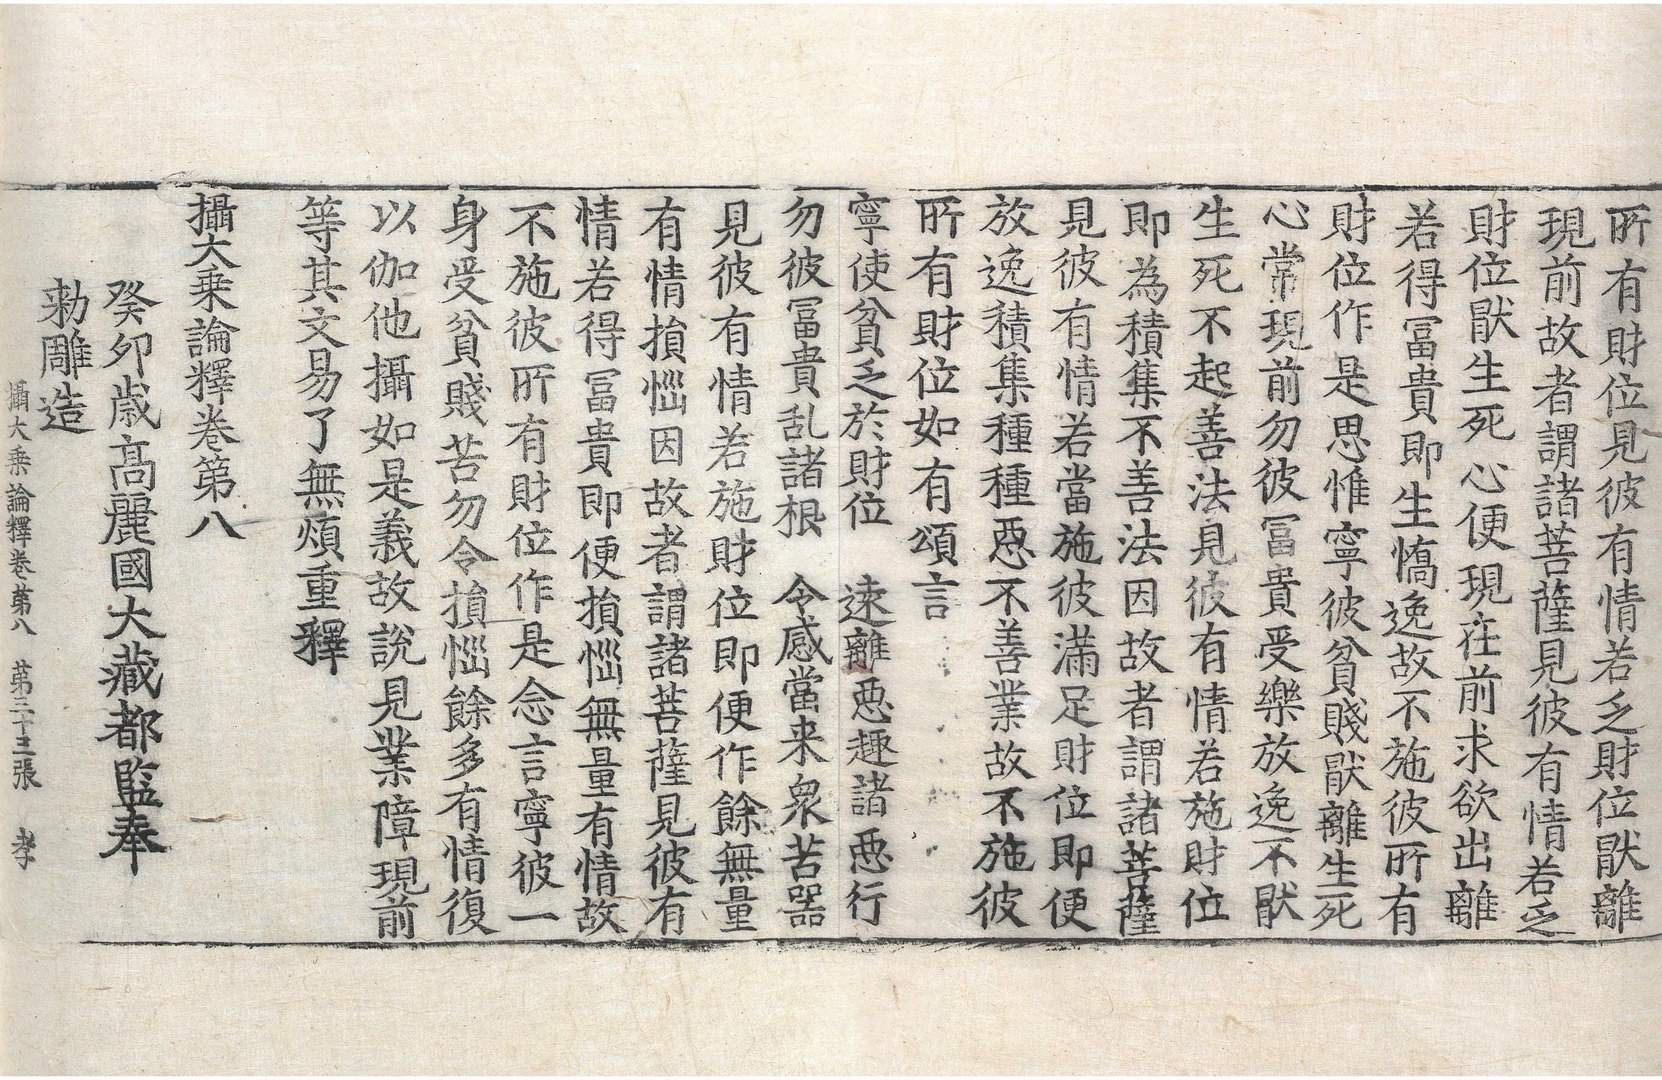 所有財位見彼有情若乏財位猒離
現前故者謂諸菩薩見彼有情若乏
財位猒生死心便現在前求欲出離
若得冨貴即生憍逸故不施彼所有
財位作是思惟寧彼貧賤猒離生死
心常現前勿彼冨貴受樂放逸不猒
生死不起善法見彼有情若施財位
即為積集不善法因故者謂諸菩薩
見彼有情若當施彼滿足財位即便
放逸積集種種惡不善業故不施彼
所有財位如有頌言
寧使貧乏於財位　遠離惡趣諸惡行
勿彼冨貴乱諸根　令感當来衆苦器
見彼有情若施財位即便作餘無量
有情損惱因故者謂諸菩薩見彼有
情若得冨貴即便損惱無量有情故
不施彼所有財位作是念言寧彼一
身受貧賤苦勿令損惱餘多有情復
以伽他攝如是義故說見業障現前
等其文易了無煩重釋
攝大乗論釋卷第八
癸卯歳高麗國大藏都監奉
勑雕造
攝大乗論釋卷第八　第二十三張　孝